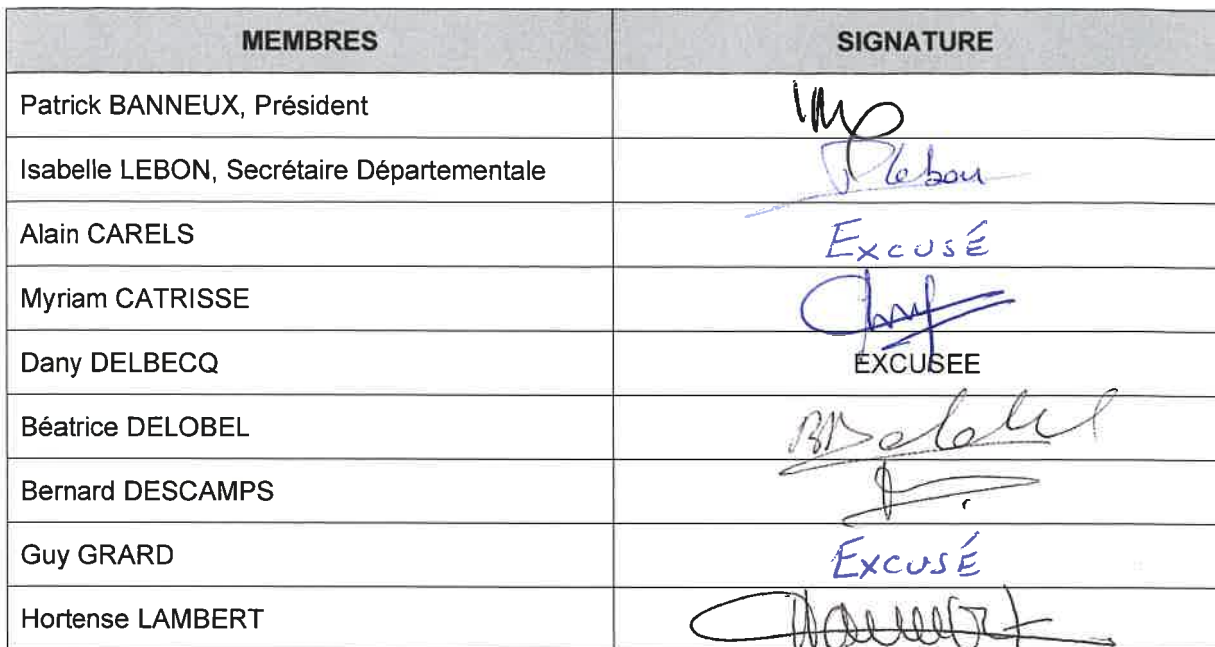 MEMBRES SIGNATURE
Patrick BANNEUX, Président
Isabelle LEBON, Secrétaire Départementale Lebon
Alain CARELS Excusé
Myriam CATRISSE
Dany DELBECQ EXCUSEE
Béatrice DELOBEL BDelobel
Bernard DESCAMPS
Guy GRARD Excusé
Hortense LAMBERT